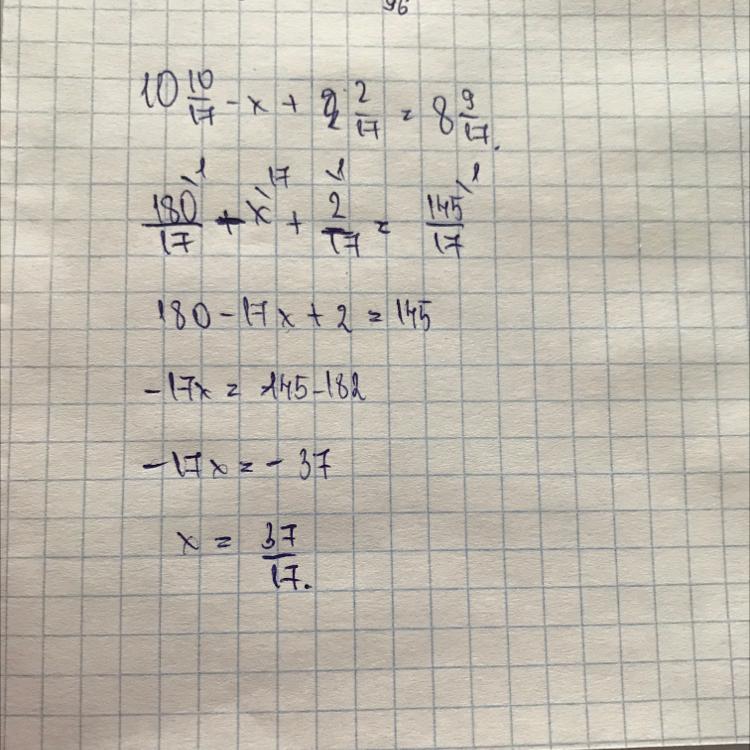 96
10 10/17 - x + 2 2/17 = 8 9/17.
180/17 \1 - x \17 + 2/17 \1 = 145/17 \1
180 - 17x + 2 = 145
-17x = 145 - 182
-17x = - 37
x = 37/17.